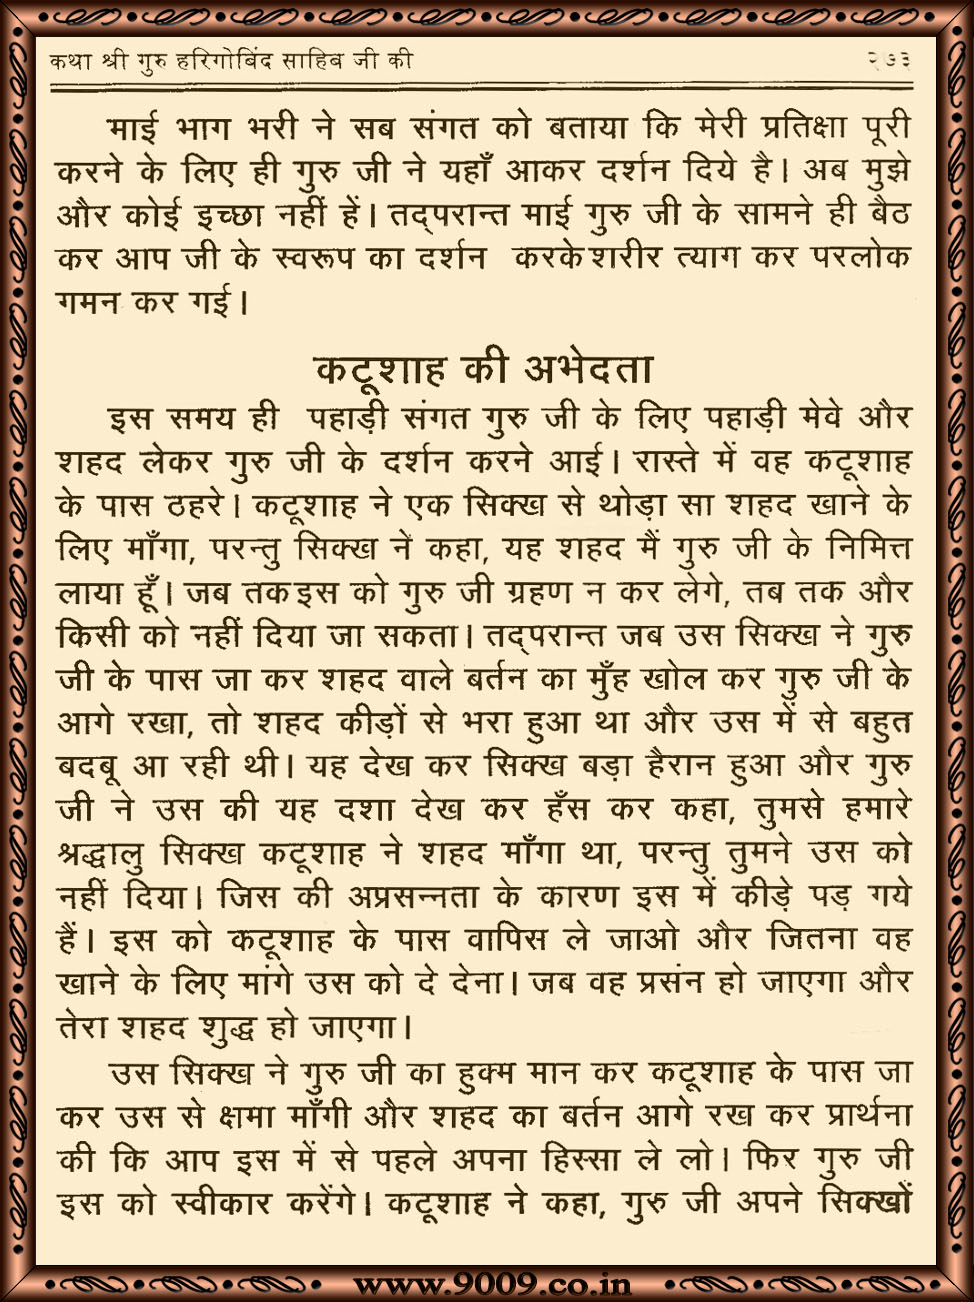 कथा श्री गुरु हरिगोबिंद साहिब जी की २७३
माई भाग भरी ने सब संगत को बताया कि मेरी प्रतिक्षा पूरी
करने के लिए ही गुरु जी ने यहाँ आकर दर्शन दिये है। अब मुझे
और कोई इच्छा नहीं हें। तद्परान्त माई गुरु जी के सामने ही बैठ
कर आप जी के स्वरूप का दर्शन करके शरीर त्याग कर परलोक
गमन कर गई।
कटूशाह की अभेदता
इस समय ही पहाड़ी संगत गुरु जी के लिए पहाड़ी मेवे और
शहद लेकर गुरु जी के दर्शन करने आई। रास्ते में वह कटूशाह
के पास ठहरे। कटूशाह ने एक सिक्ख से थोड़ा सा शहद खाने के
लिए माँगा, परन्तु सिक्ख ने कहा, यह शहद मैं गुरु जी के निमित्त
लाया हूँ। जब तक इस को गुरु जी ग्रहण न कर लेगे, तब तक और
किसी को नहीं दिया जा सकता। तद्परान्त जब उस सिक्ख ने गुरु
जी के पास जा कर शहद वाले बर्तन का मुँह खोल कर गुरु जी के
आगे रखा, तो शहद कीड़ों से भरा हुआ था और उस में से बहुत
बदबू आ रही थी। यह देख कर सिक्ख बड़ा हैरान हुआ और गुरु
जी ने उस की यह दशा देख कर हँस कर कहा, तुमसे हमारे
श्रद्धालु सिक्ख कटूशाह ने शहद माँगा था, परन्तु तुमने उस को
नहीं दिया। जिस की अप्रसन्नता के कारण इस में कीड़े पड़ गये
हैं। इस को कटूशाह के पास वापिस ले जाओ और जितना वह
खाने के लिए मांगे उस को दे देना। जब वह प्रसंन हो जाएगा और
तेरा शहद शुद्ध हो जाएगा।
उस सिक्ख ने गुरु जी का हुक्म मान कर कटूशाह के पास जा
कर उस से क्षमा माँगी और शहद का बर्तन आगे रख कर प्रार्थना
की कि आप इस में से पहले अपना हिस्सा ले लो। फिर गुरु जी
इस को स्वीकार करेंगे। कटूशाह ने कहा, गुरु जी अपने सिक्खों
www.9009.co.in